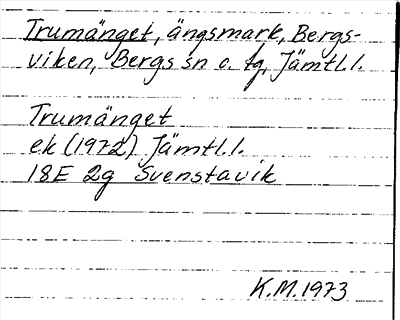 Trumänget, ängsmark, Bergs-
viken, Bergs sn o. tg, Jämtl.l.
Trumänget
ek (1972) Jämtl.l.
18E 2g Svenstavik
K.M.1973